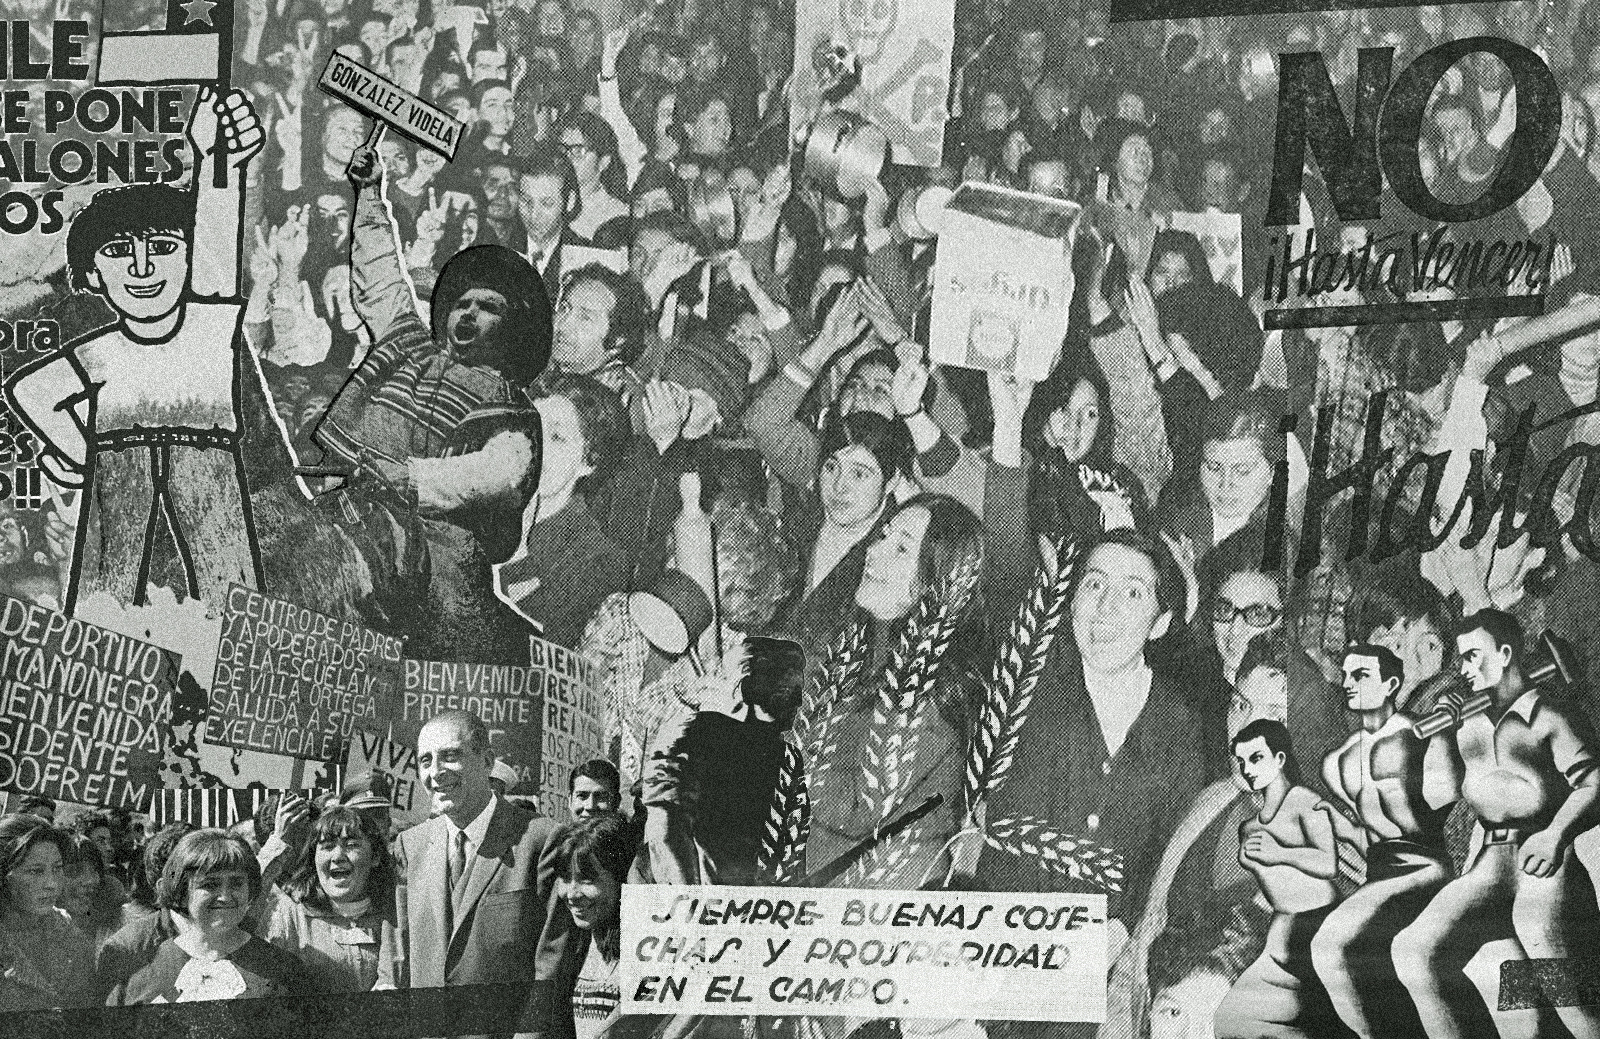 ILE
SE PONE
ALONES
OS
ora
es
o!!
GONZALEZ VIDELA
NO
¡Hasta Vencer!
¡Hasta
DEPORTIVO
MANONEGRA
IENVENIDA
SIDENTE
DOFREIM
CENTRO DE PADRES
Y APODERADOS
DE LA ESCUELA N
DE VILLA ORTEGA
SALUDA A SU
EXELENCIA E
BIEN-VENIDO
PRESIDENTE
BIENVE
RESI
REI
VIVA
REI
SIEMPRE BUENAS COSE-
CHAS Y PROSPERIDAD
EN EL CAMPO.